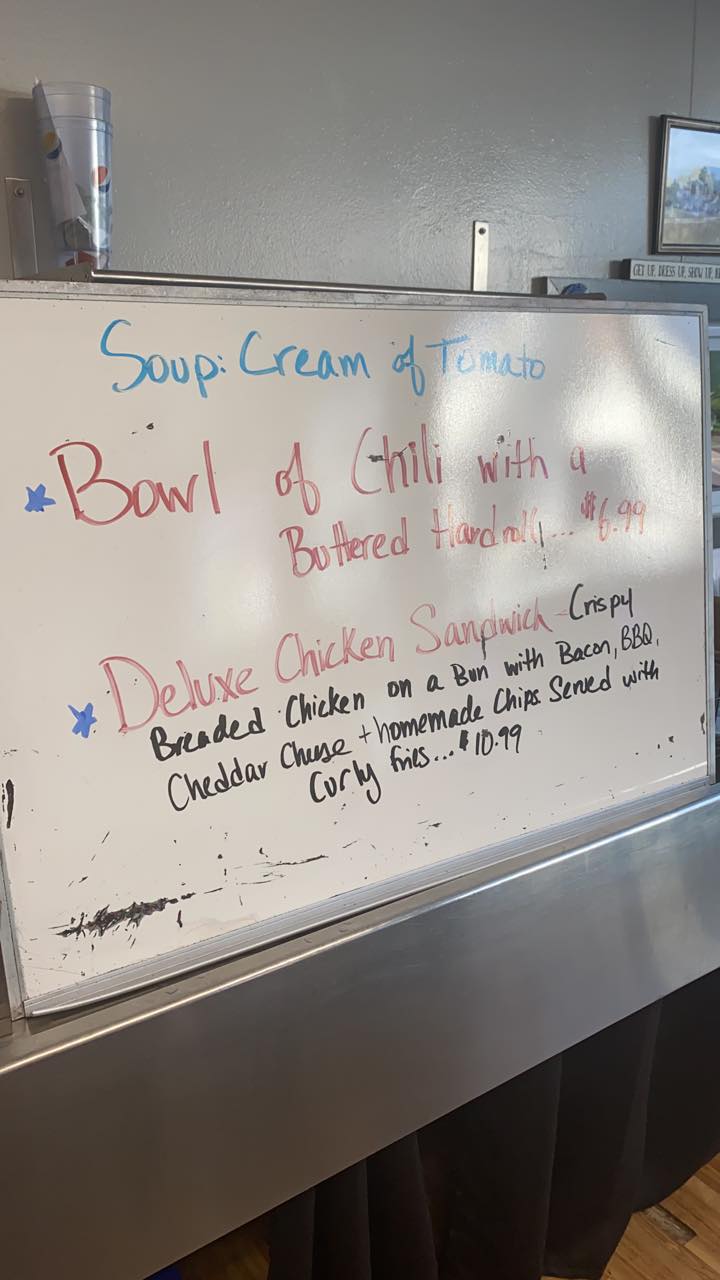 GET UP, DRESS UP, SHOW UP,
Soup: Cream of Tomato
Bowl of Chili with a
Buttered Hardroll... $6.99
Deluxe Chicken Sandwich - Crispy
Breaded Chicken on a Bun with Bacon, BBQ,
Cheddar Cheese + homemade Chips. Served with
Curly fries... $10.99